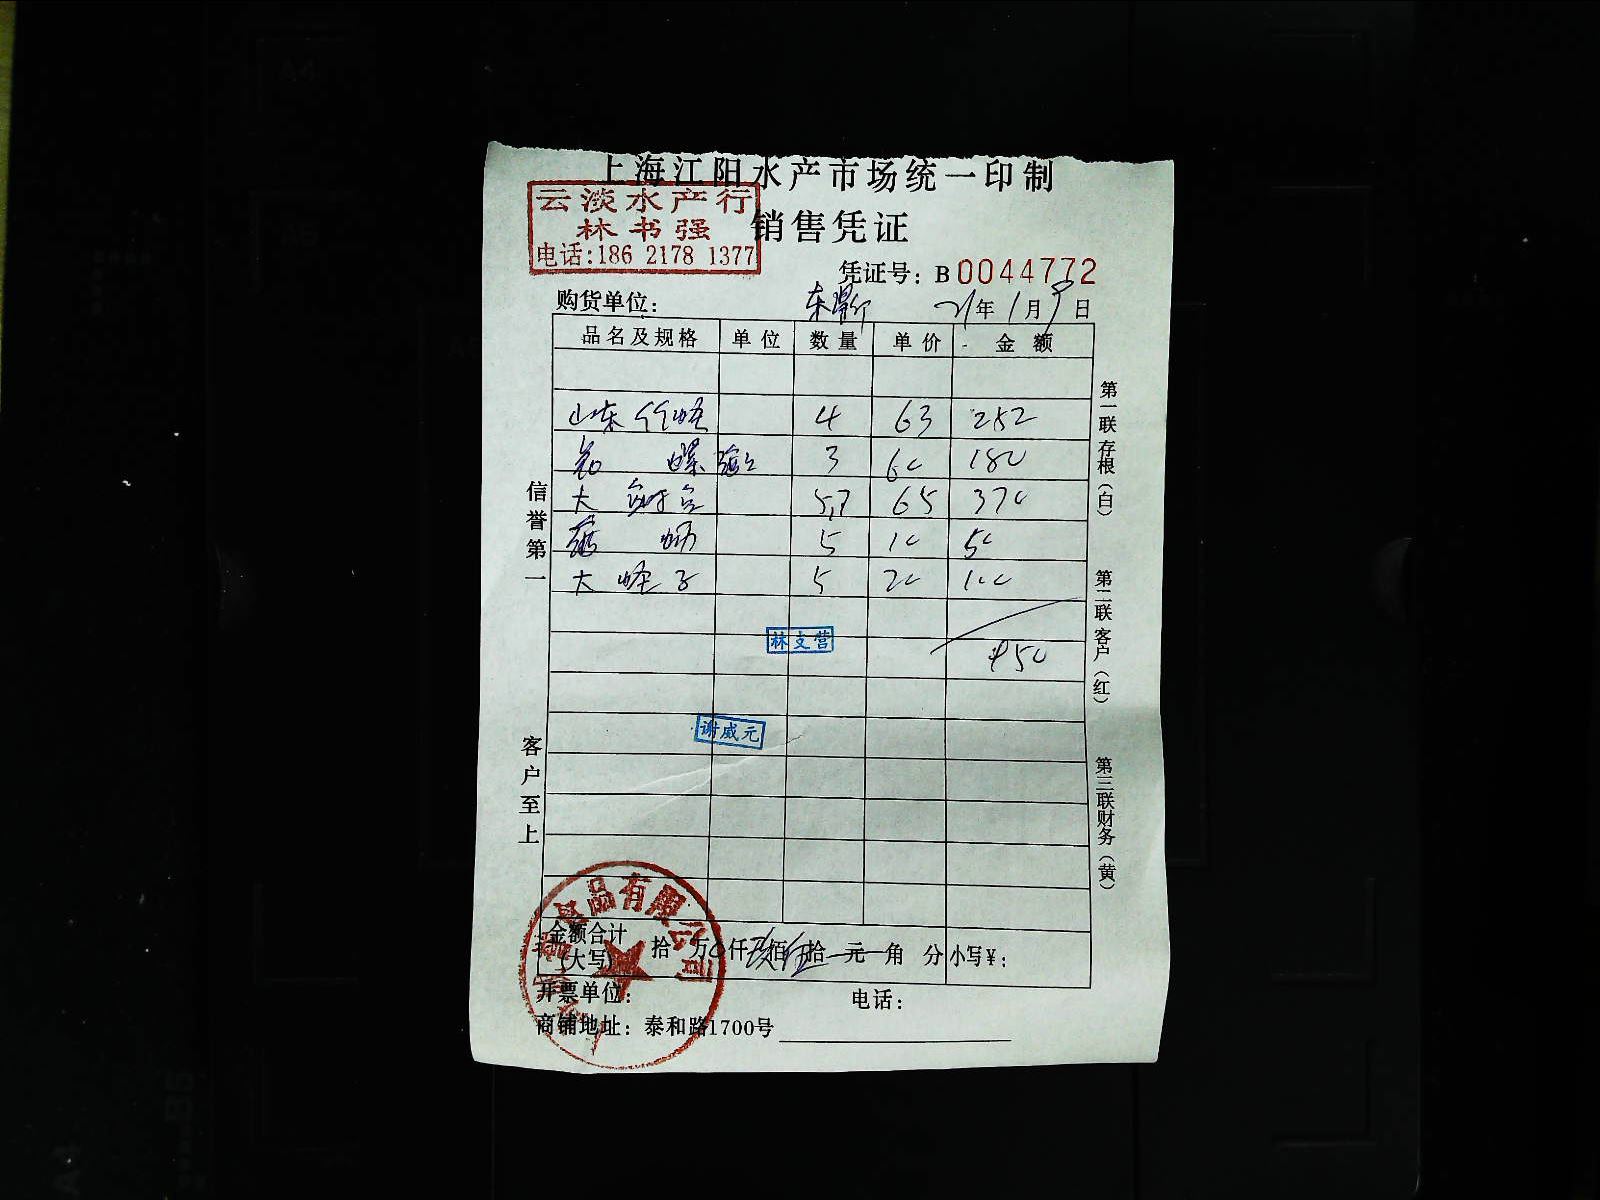 上海江阳水产市场统一印制
云淡水产行
林书强
电话:186 2178 1377
销售凭证
凭证号: B0044772
购货单位: 21年1月9日
品名及规格 单位 数量 单价 金额
山东 4 63 252
螺 3 60 180
大 5.7 65 370
5 10 50
大蛏子 5 20 100
950
林支营
谢威元
信誉第一
客户至上
第一联存根(白)
第二联客户(红)
第三联财务(黄)
食品有限公司
金额合计(大写) 拾 万 仟玖佰伍拾 元 角 分 小写¥:
开票单位: 电话:
商铺地址: 泰和路1700号